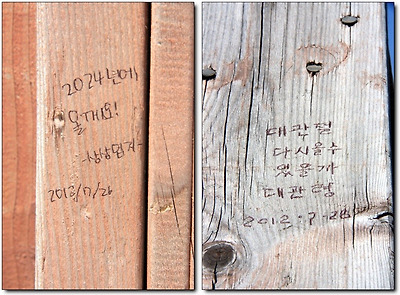 2024년에
올게요!
2013/7/26
대관령
다시올수
있을까
대관령
2013.7.26